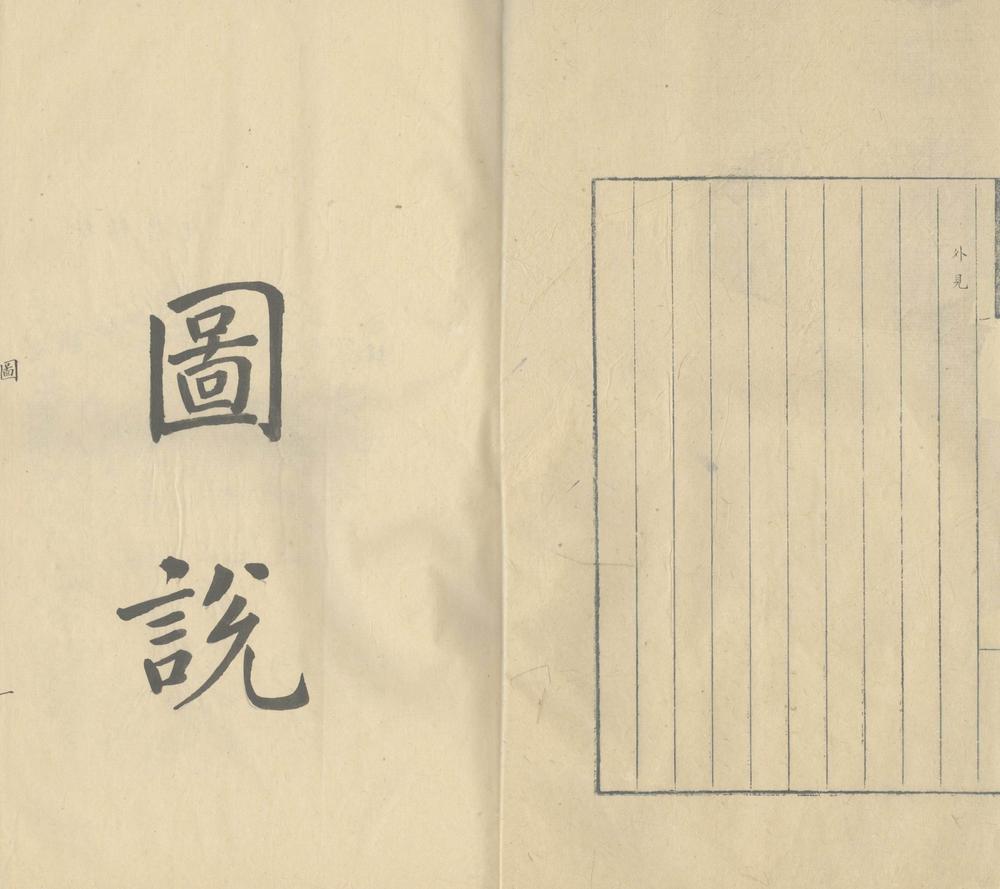 外見
圖說
圖
一